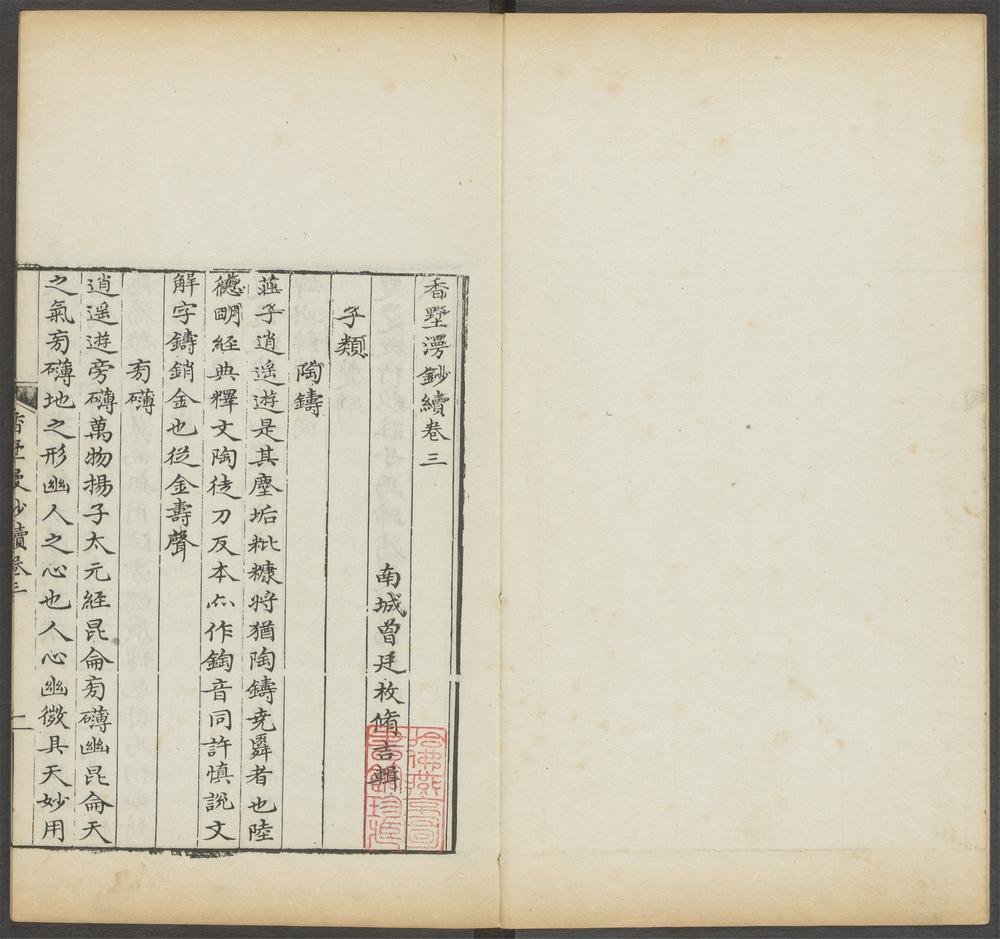 香墅漫鈔續卷三
南城曾廷枚脩吉輯
子類
陶鑄
莊子逍遥遊是其塵垢粃糠将猶陶鑄尭舜者也陸
德明經典釋文陶徒刀反本亦作鋾音同許慎説文
解字鑄銷金也從金壽聲
旁礴
逍遥遊旁礴萬物揚子太元経昆侖旁礴幽昆侖天
之氣旁礴地之形幽人之心也人心幽微具天妙用
香墅漫鈔續卷三
哈佛燕京圖
書館珍藏